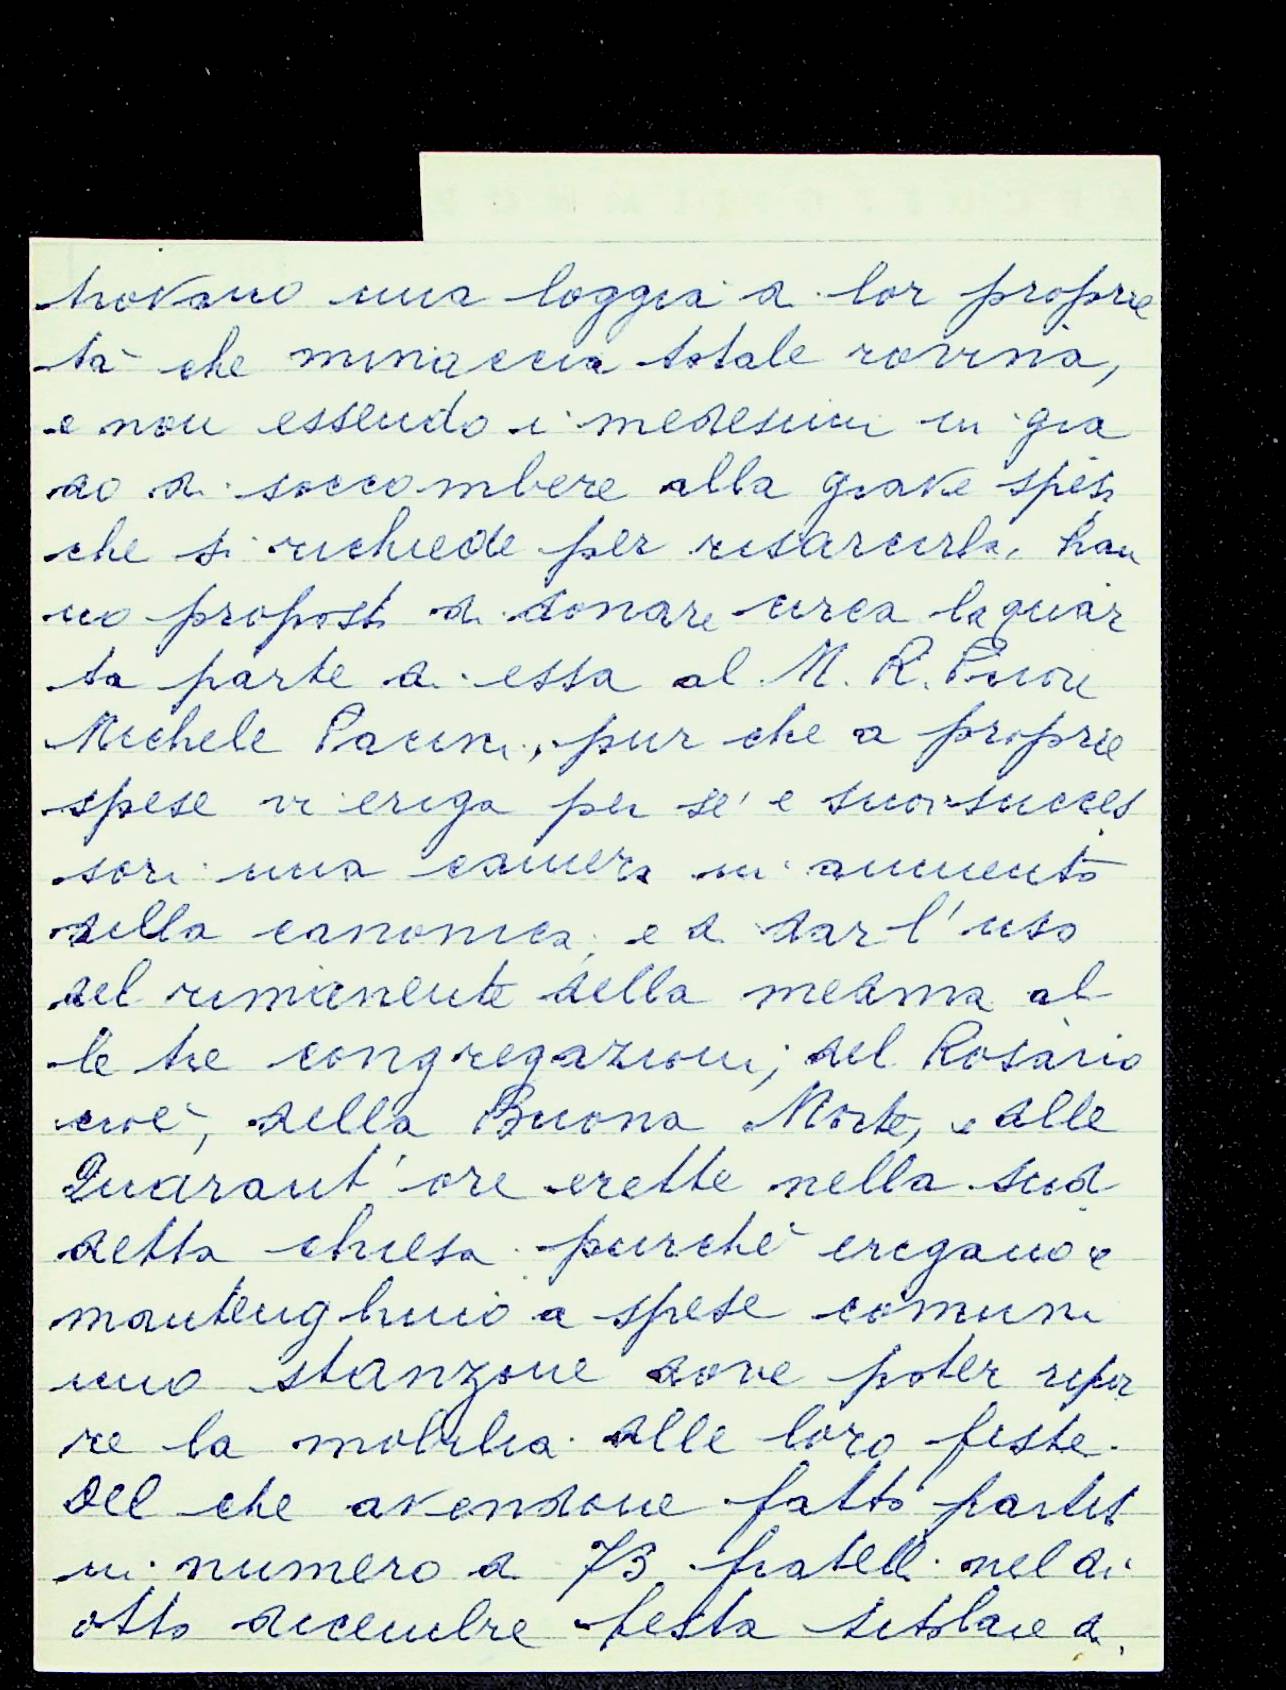 trovano una loggia di lor proprie
tà che minaccia totale rovina,
e non essendo i medesimi in gra
do di soccombere alla grave spesa
che si richiede per risarcirla, han
no proposto di donare circa la quar
ta parte di essa al M. R. Priore
Michele Pacini, pur che a proprie
spese vi eriga per sé e suoi succes
sori una camera in aumento
della canonica, e di dar l'uso
del rimanente della medma al
le tre congregazioni; del Rosario
cioè, della Buona Morte, e delle
Quarant'ore erette nella sud
detta chiesa purché erigano e
mantenghino a spese comuni
uno stanzone dove poter ripor
re la mobilia delle loro feste.
Del che avendone fatto partito
in numero di 73 fratelli nel di
otto dicembre festa titolare di